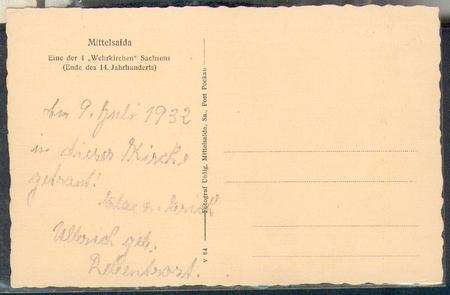 Mittelsaida
Eine der 4 „Wehrkirchen“ Sachsens
(Ende des 14. Jahrhunderts)
Am 9. Juli 1932
in dieser Kirche
getraut!
geb.
Fotograf Uhlig, Mittelsaida, Sa., Post Pockau
V 64